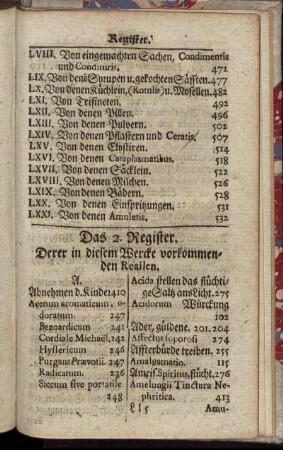 Register.
LVIII. Von eingemachten Sachen, Condimentis
und Condituris. 472
LIX. Von denē Syrupen u. gekochten Säfften. 477
LX. Von denen Küchlein, (Rotulis) u. Morsellen. 482
LXI. Von Trisineten. 492
LXII. Von denen Pillen. 496
LXIII. Von denen Pulvern. 502
LXIV. Von denen Pflastern und Ceratis. 507
LXV. Von denen Clystiren. 514
LXVI. Von denen Cataplasmatibus. 518
LXVII. Von denen Säcklein. 522
LXVIII. Von denen Milchen. 526
LXIX. Von denen Bädern. 528
LXX. Von denen Einspritzungen. 531
LXXI. Von denen Amuletis. 532
Das 2. Register.
Derer in diesem Wercke vorkommen-
den Realien.
A.
Abnehmen d. Kinder 410
Acetum aromaticum, o-
doratum. 247
Bezoardicum 241
Cordiale Michaël. 142
Hystericum 246
Purgans Prævotii. 247
Radicatum. 236
Siccum sive portatile
248
Acida stellen das flüchti-
ge Saltz ans Licht. 275
Acidorum Würckung
102
Ader, güldene. 201. 204
Affectus soporosi 274
Affterbürde treiben. 255
Amalgamatio. 115
Ameis. Spiritus, flücht. 276
Amelungii Tinctura Ne-
phritica. 413
Ll 5 Amu-